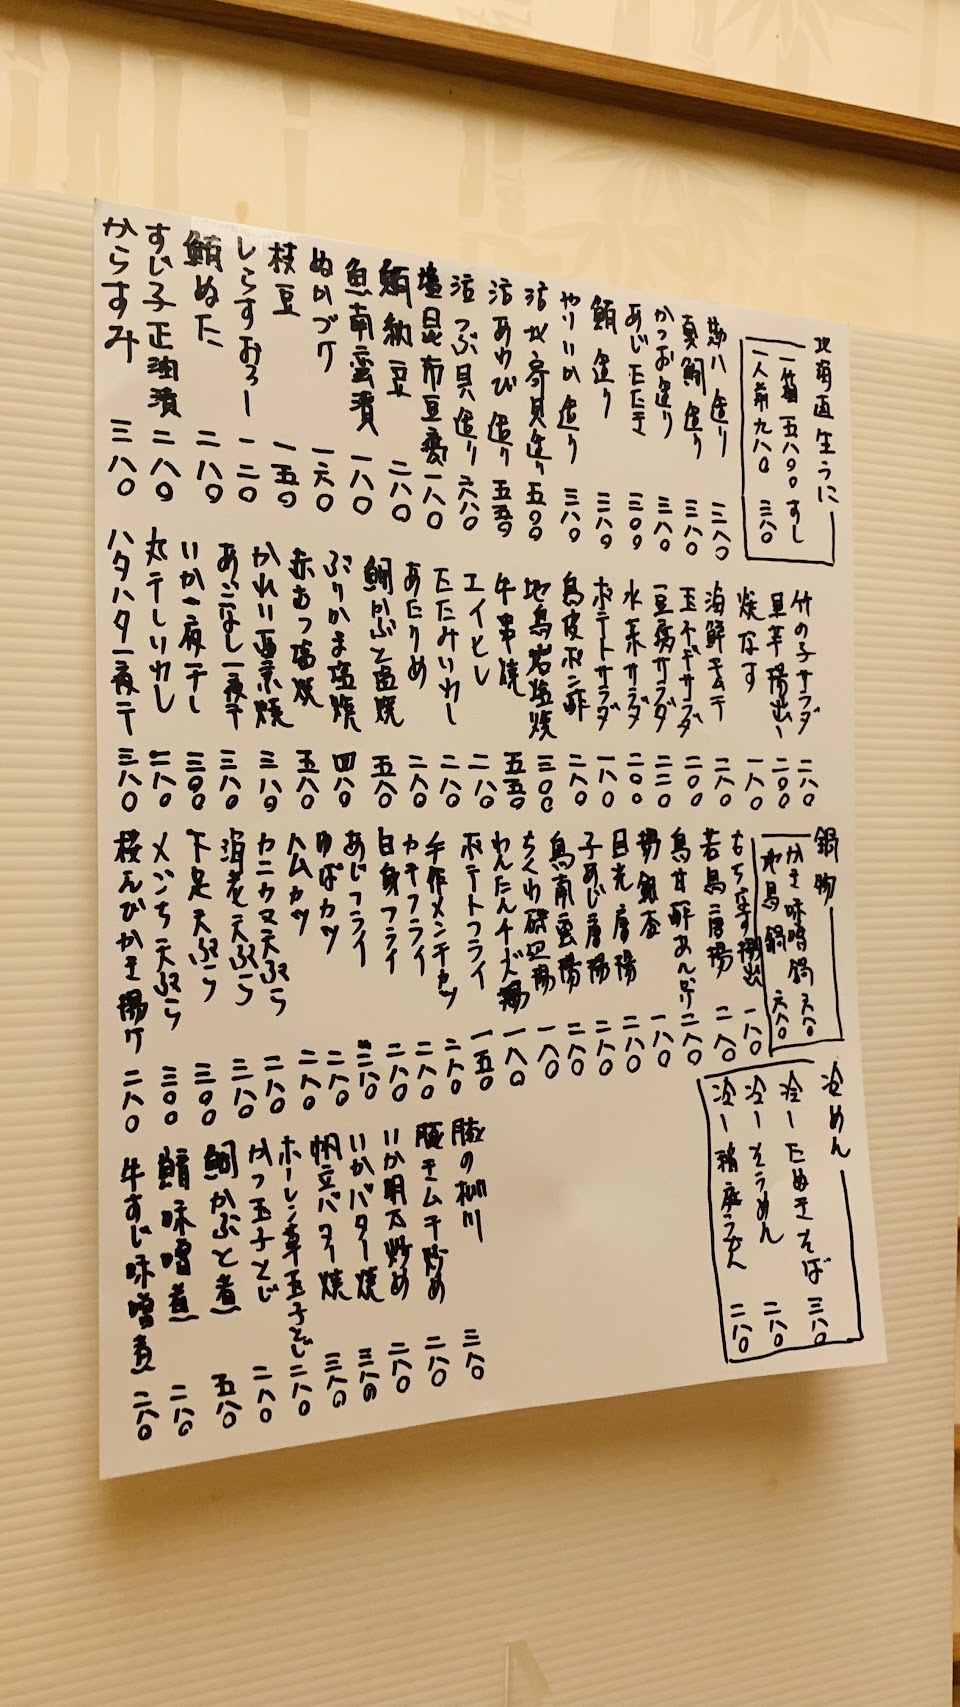 北海道生うに
一箱 五八〇〇 すし
一人前 九八〇 三八〇
勘八造り 三八〇
真鯛造り 三八〇
かつお造り 三八〇
あじたたき 三〇〇
鮪造り 三八〇
やりいか造り 三八〇
活北寄貝造り 五〇〇
活あわび造り 五五〇
活つぶ貝造り 六八〇
塩昆布豆腐 一八〇
鮪納豆 二八〇
魚南蛮漬 一八〇
ぬかづけ 一六〇
枝豆 一五〇
しらすおろし 一二〇
鮪ぬた 二八〇
すじ子正油漬 二八〇
からすみ 三八〇
竹の子サラダ 二八〇
里芋揚出し 二〇〇
焼なす 一八〇
海鮮キムチ 二八〇
玉ネギサラダ 二〇〇
豆腐サラダ 二二〇
水菜サラダ 二〇〇
ポテトサラダ 一八〇
鳥皮ポン酢 二八〇
地鳥岩塩焼 三〇〇
牛串焼 五五〇
エイヒレ 二八〇
たたみいわし 二八〇
あたりめ 二八〇
鯛かぶと塩焼 五八〇
ぶりかま塩焼 四八〇
赤むつ塩焼 五八〇
かれい西京焼 三八〇
あごなし一夜干 三八〇
いか一夜干し 三〇〇
丸干しいわし 二八〇
ハタハタ一夜干 三八〇
鍋物
かき味噌鍋 六八〇
地鳥鍋 六八〇
もち揚出 一八〇
若鳥唐揚 二八〇
鳥甘酢あんかけ 二八〇
揚銀杏 一八〇
目光唐揚 二八〇
子あじ唐揚 二八〇
鳥南蛮揚 二八〇
ちくわ磯辺揚 一八〇
わんたんチーズ揚 一八〇
ポテトフライ 一五〇
手作メンチカツ 二八〇
カキフライ 二八〇
白身フライ 二八〇
あじフライ 三八〇
ゆばカツ 二八〇
ハムカツ 二八〇
カニカマ天ぷら 二八〇
海老天ぷら 三八〇
下足天ぷら 三〇〇
メゴチ天ぷら 三〇〇
桜えびかき揚げ 二八〇
冷めん
冷しためきそば 三八〇
冷しそうめん 二八〇
冷し稲庭うどん 二八〇
豚の柳川 三八〇
豚キムチ炒め 二八〇
いか明太炒め 二八〇
いかバター焼 三八〇
帆立バター焼 三八〇
ホーレン草玉子とじ 二八〇
かつ玉子とじ 二八〇
鯛かぶと煮 五八〇
鯖味噌煮 二八〇
牛すじ味噌煮 二八〇